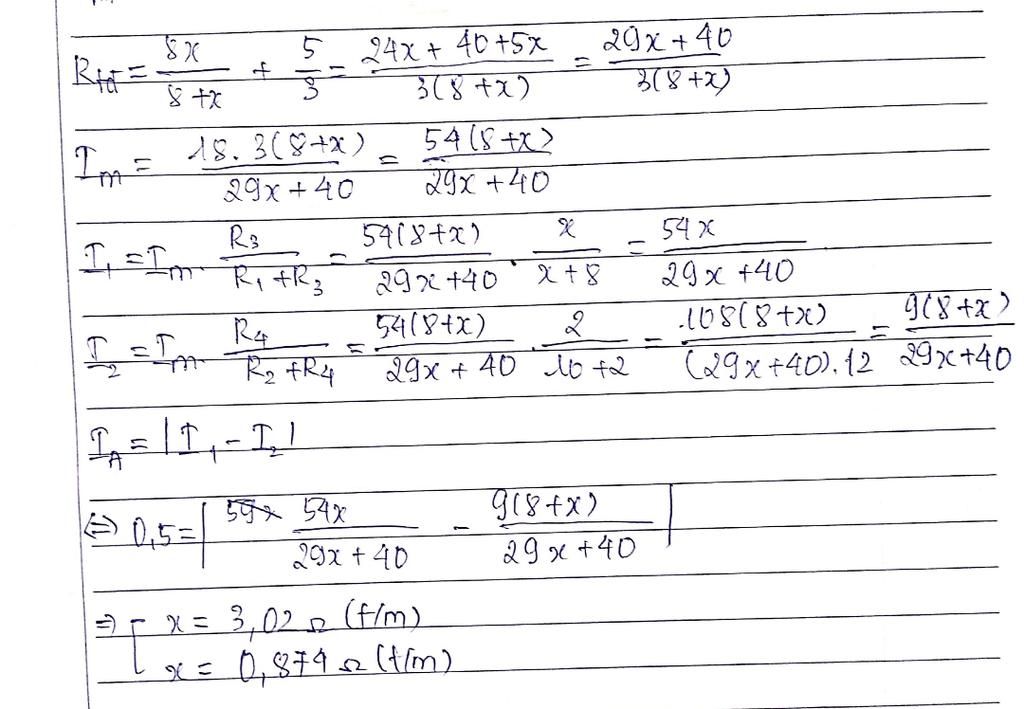 Rtđ = 8x/(8+x) + 5/3 = (24x + 40 + 5x)/(3(8+x)) = (29x + 40)/(3(8+x))
Im = (18.3(8+x))/(29x + 40) = (54(8+x))/(29x + 40)
I₁ = Im. R₃/(R₁+R₃) = (54(8+x))/(29x+40) . x/(x+8) = 54x/(29x+40)
I₂ = Im. R₄/(R₂+R₄) = (54(8+x))/(29x+40) . 2/(10+2) = (108(8+x))/((29x+40).12) = (9(8+x))/(29x+40)
I_A = |I₁ - I₂|
⇔ 0,5 = | 54x/(29x+40) - (9(8+x))/(29x+40) |
⇒ [ x = 3,02 Ω (t/m)
x = 0,874 Ω (t/m)